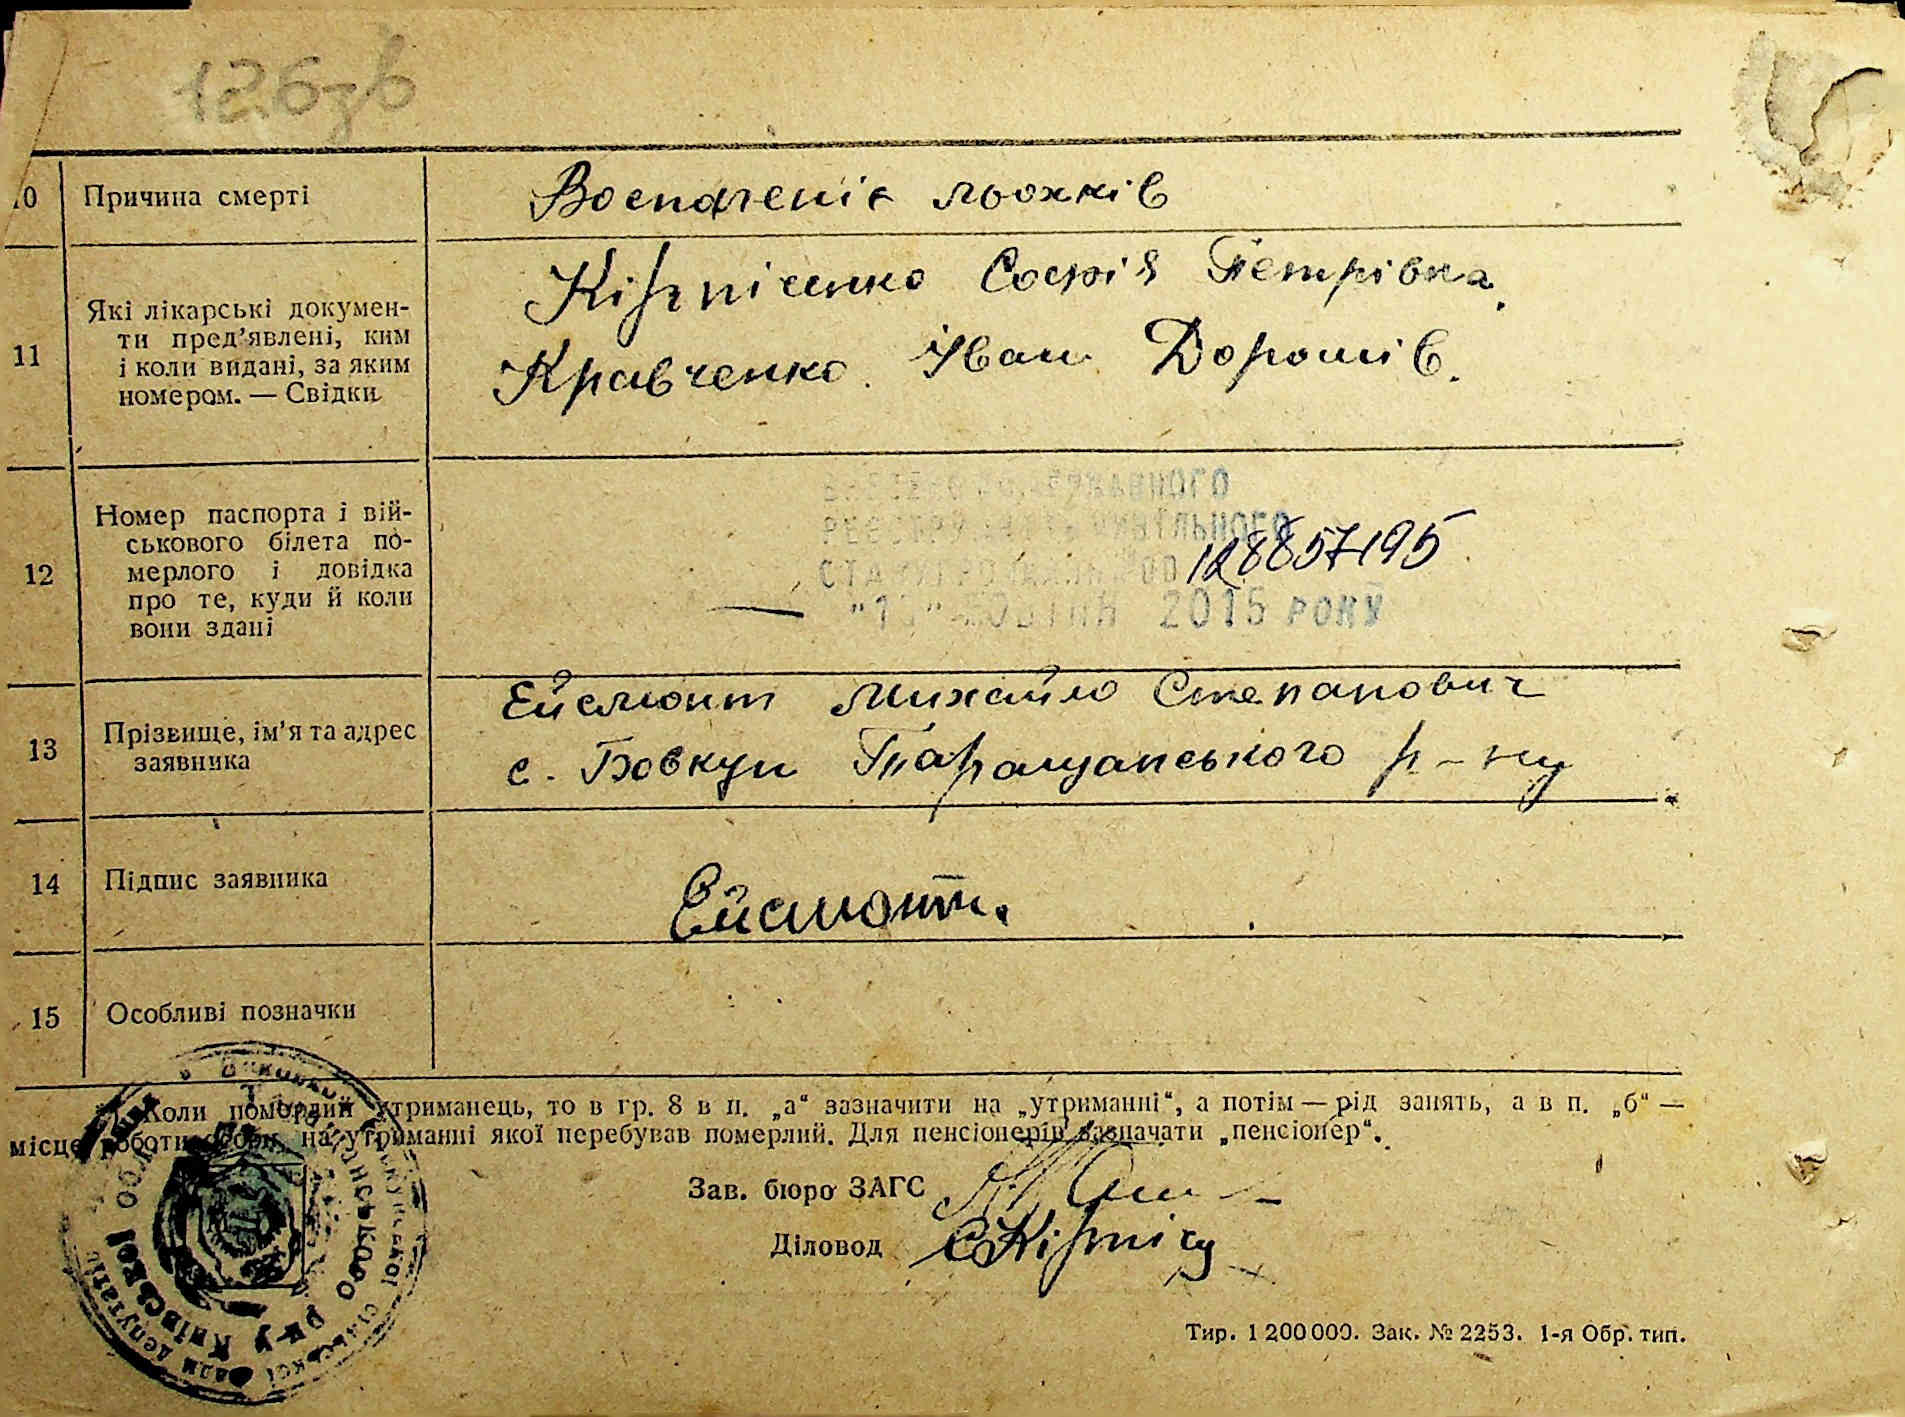 126зв
10 Причина смерті
Воспаленіє льохків
11 Які лікарські докумен-
ти пред'явлені, ким
і коли видані, за яким
номером. — Свідки
Кірпіченко Софія Петрівна.
Кравченко Іван Дорошів.
12 Номер паспорта і вій-
ськового білета по-
мерлого і довідка
про те, куди й коли
вони здані
—
ДЕРЖАВНОГО
РЕЄСТРУ АКТІВ ЦИВІЛЬНОГО
СТАНУ ГРОМАДЯН 00128857195
2015 РОКУ
13 Прізвище, ім'я та адрес
заявника
Ейсмонт Михайло Степанович
с. Бовкун Таращанського р-ну
14 Підпис заявника
Ейсмонт.
15 Особливі позначки
*) Коли померлий утриманець, то в гр. 8 в п. „а“ зазначити на „утриманні“, а потім — рід занять, а в п. „б“ —
місце роботи особи, на утриманні якої перебував померлий. Для пенсіонерів зазначати „пенсіонер“.
Зав. бюро ЗАГС
Діловод СКірпіч
Таращанського р-ну Київської
сільської ради депутатів
Тир. 1 200 000. Зак. № 2253. 1-я Обр. тип.